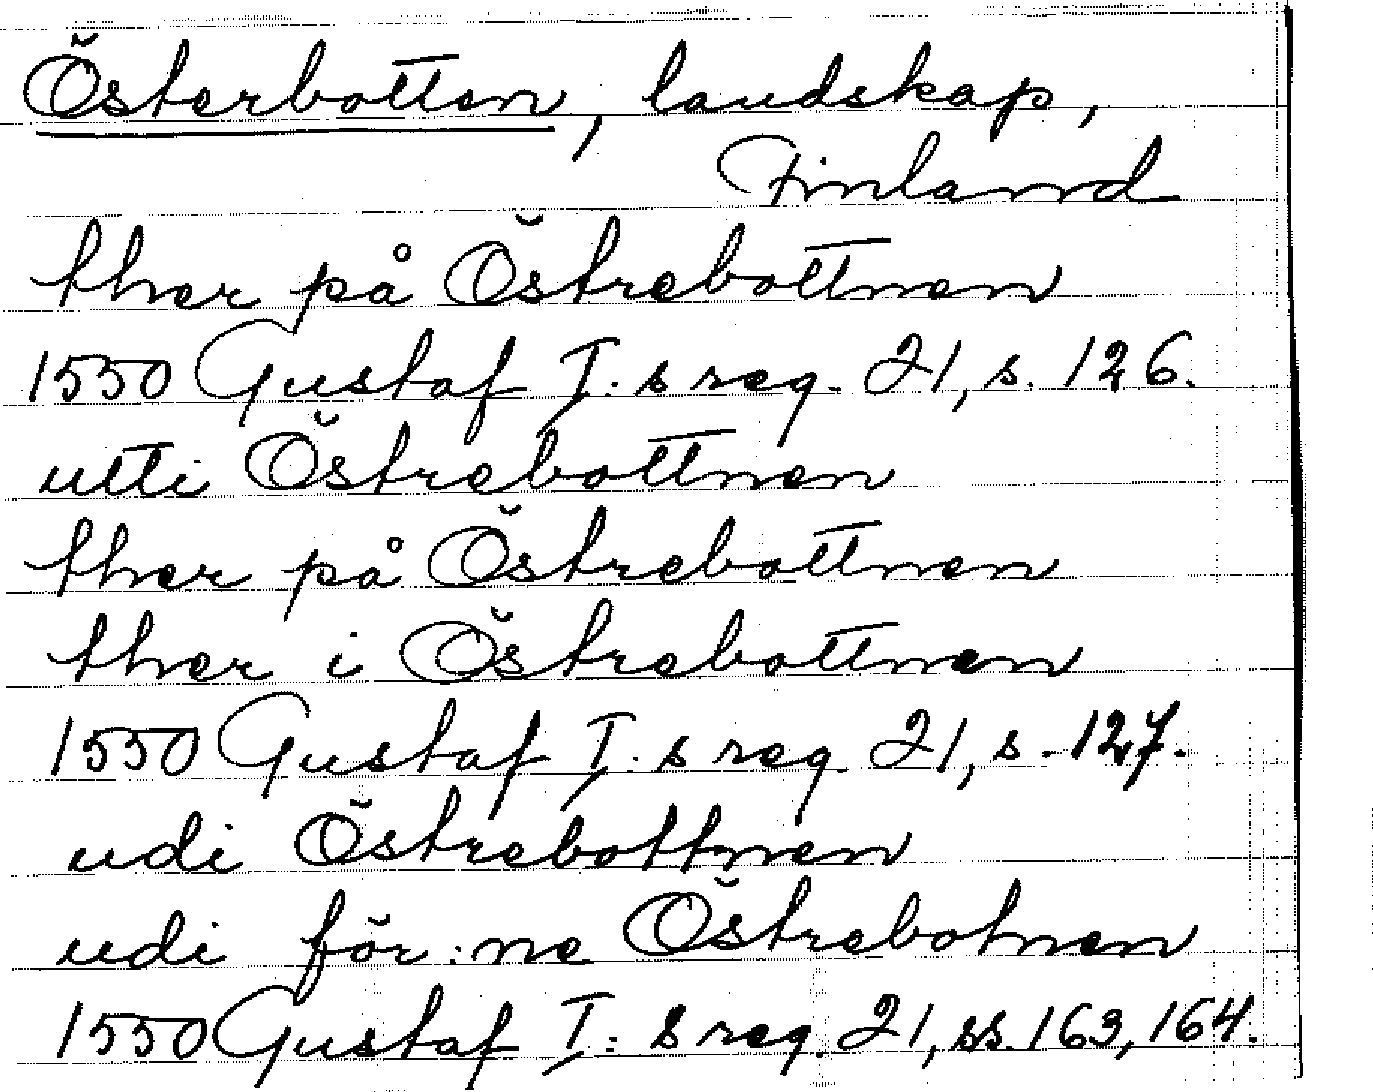 Österbotten, landskap,
Finland
ther på Östrebottnen
1550 Gustaf I:s reg. 21, s. 126.
utti Östrebottnen
ther på Östrebottnen
ther i Östrebottnen
1550 Gustaf I:s reg. 21, s. 127.
udi Östrebottnen
udi för:ne Östrebotnen
1550 Gustaf I:s reg. 21, ss. 163, 164.